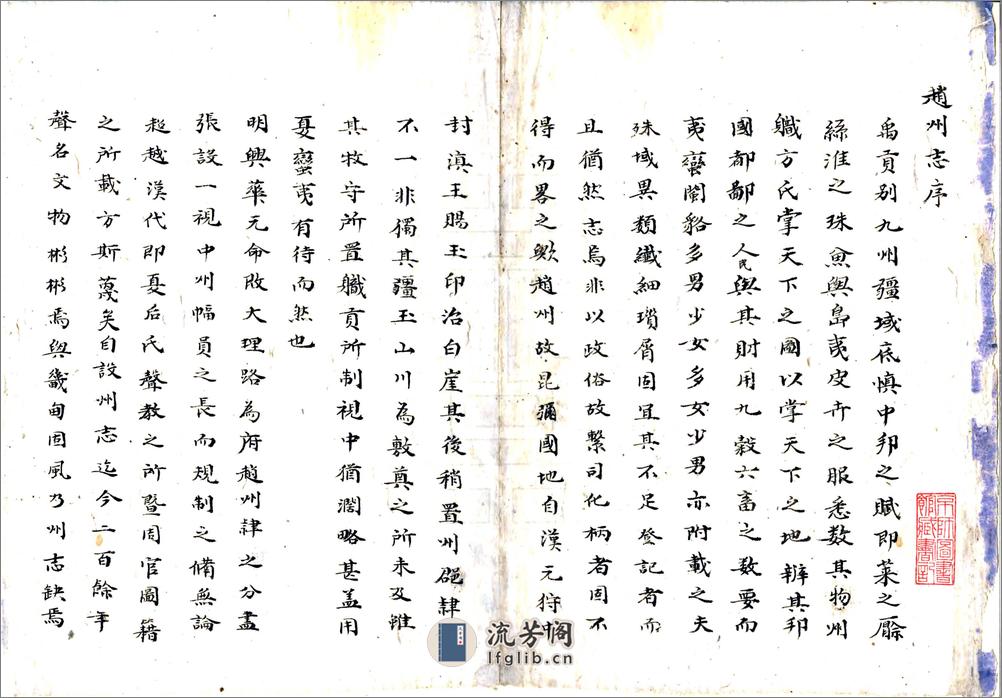 趙州志序
禹貢別九州疆域底慎中邦之賦即萊之檿
絲淮之珠魚與島夷皮卉之服悉數其物州
職方氏掌天下之圖以掌天下之地辨其邦
國都鄙之人民與其財用九穀六畜之数要而
夷蠻閩貉多男少女多女少男亦附載之夫
殊域異類纖細瑣屑固宜其不足登記者而
且猶然志焉非以政俗故繫司化柄者固不
得而畧之歟趙州故昆彌國地自漢元狩中
封滇王賜玉印治白崖其後稍置州郡隸
不一非獨其疆土山川為敷奠之所未及雖
其牧守所置職貢所制視中猶濶略甚盖用
夏蠻夷有待而然也
明興華元命改大理路為府趙州隸之分畫
張設一視中州幅員之長而規制之備無論
超越漢代即夏后氏聲教之所暨周官圖籍
之所載方斯蔑矣自設州志迄今二百餘年
聲名文物彬彬焉與畿甸同風乃州志缺焉
京師圖書館藏書記
流芳阁
lfglib.cn